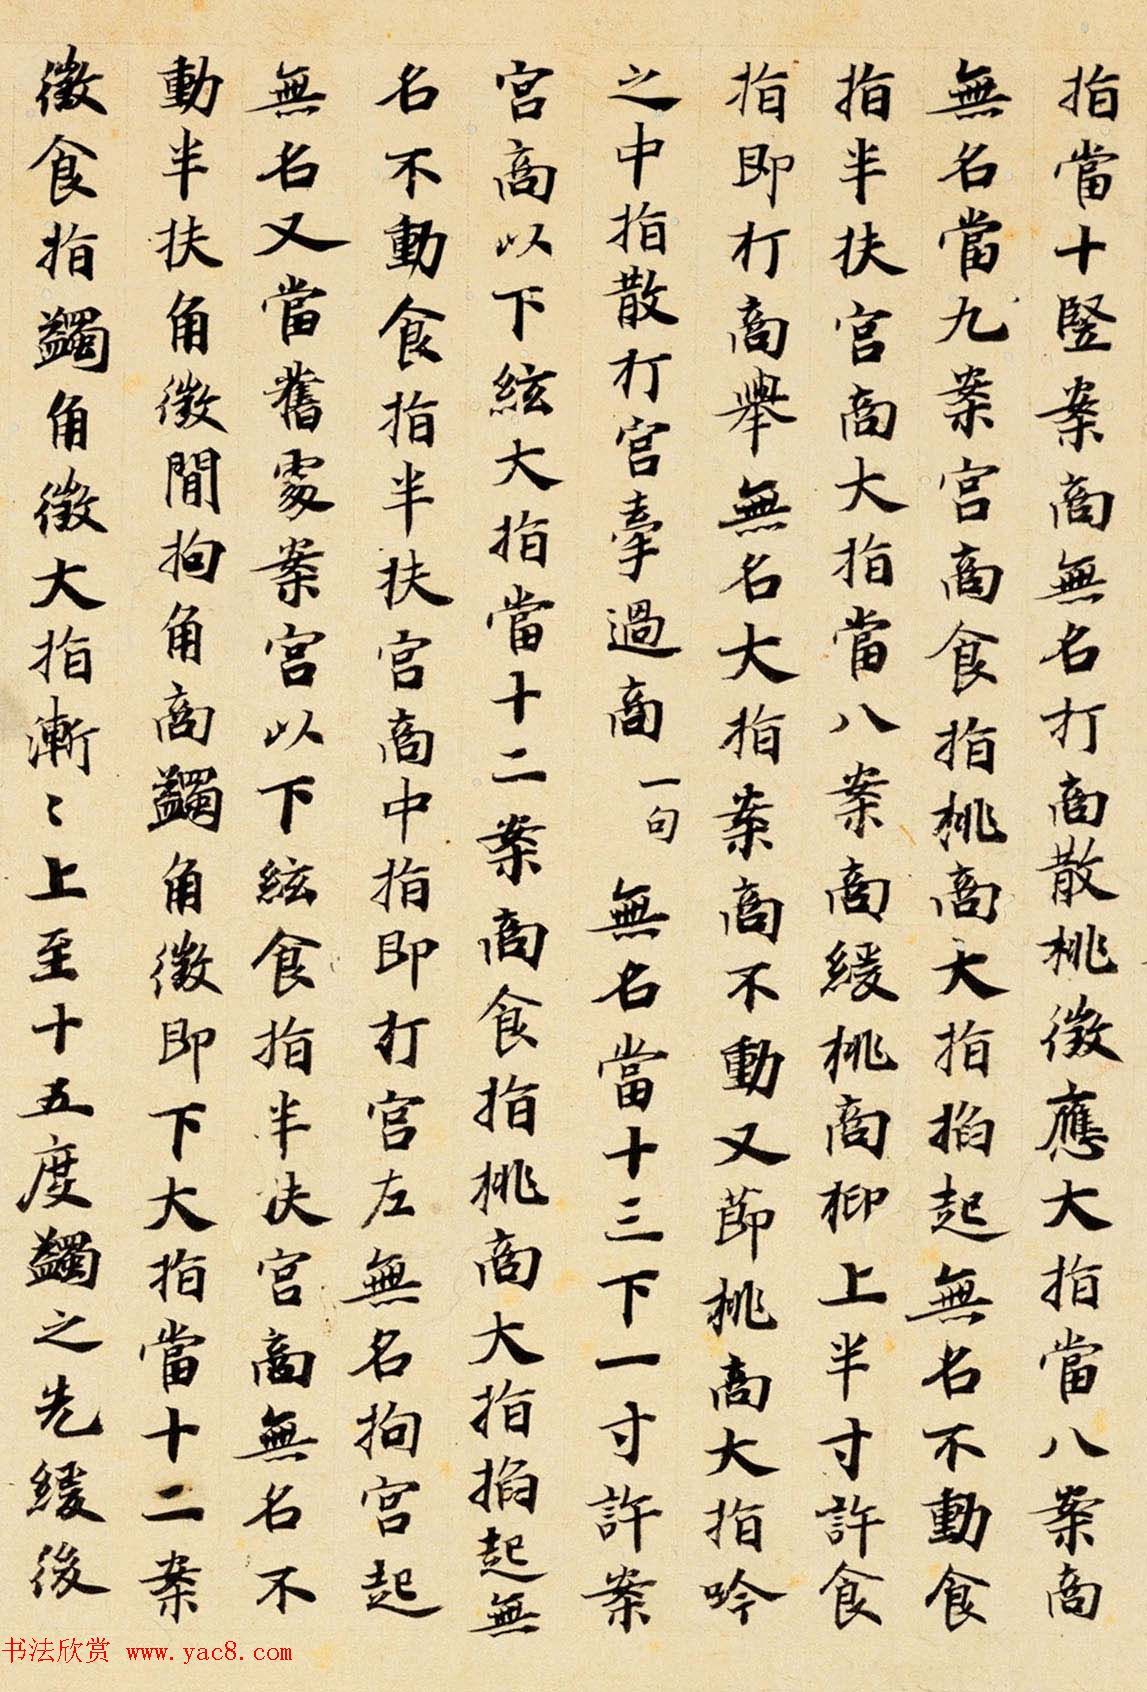 指當十竪案商無名打商散桃徴應大指當八案商
無名當九案宮商食指桃商大指掐起無名不動食
指半扶宮商大指當八案商緩桃商柳上半寸許食
指即打商舉無名大指案商不動又節桃商大指吟
之中指散打宮牽過商 一句 無名當十三下一寸許案
宮商以下絃大指當十二案商食指桃商大指掐起無
名不動食指半扶宮商中指即打宮左無名拘宮起
無名又當舊處案宮以下絃食指半扶宮商無名不
動半扶角徴間拘角商蠲角徴即下大指當十二案
徴食指蠲角徴大指漸〻上至十五度蠲之先緩後
书法欣赏 www.yac8.com